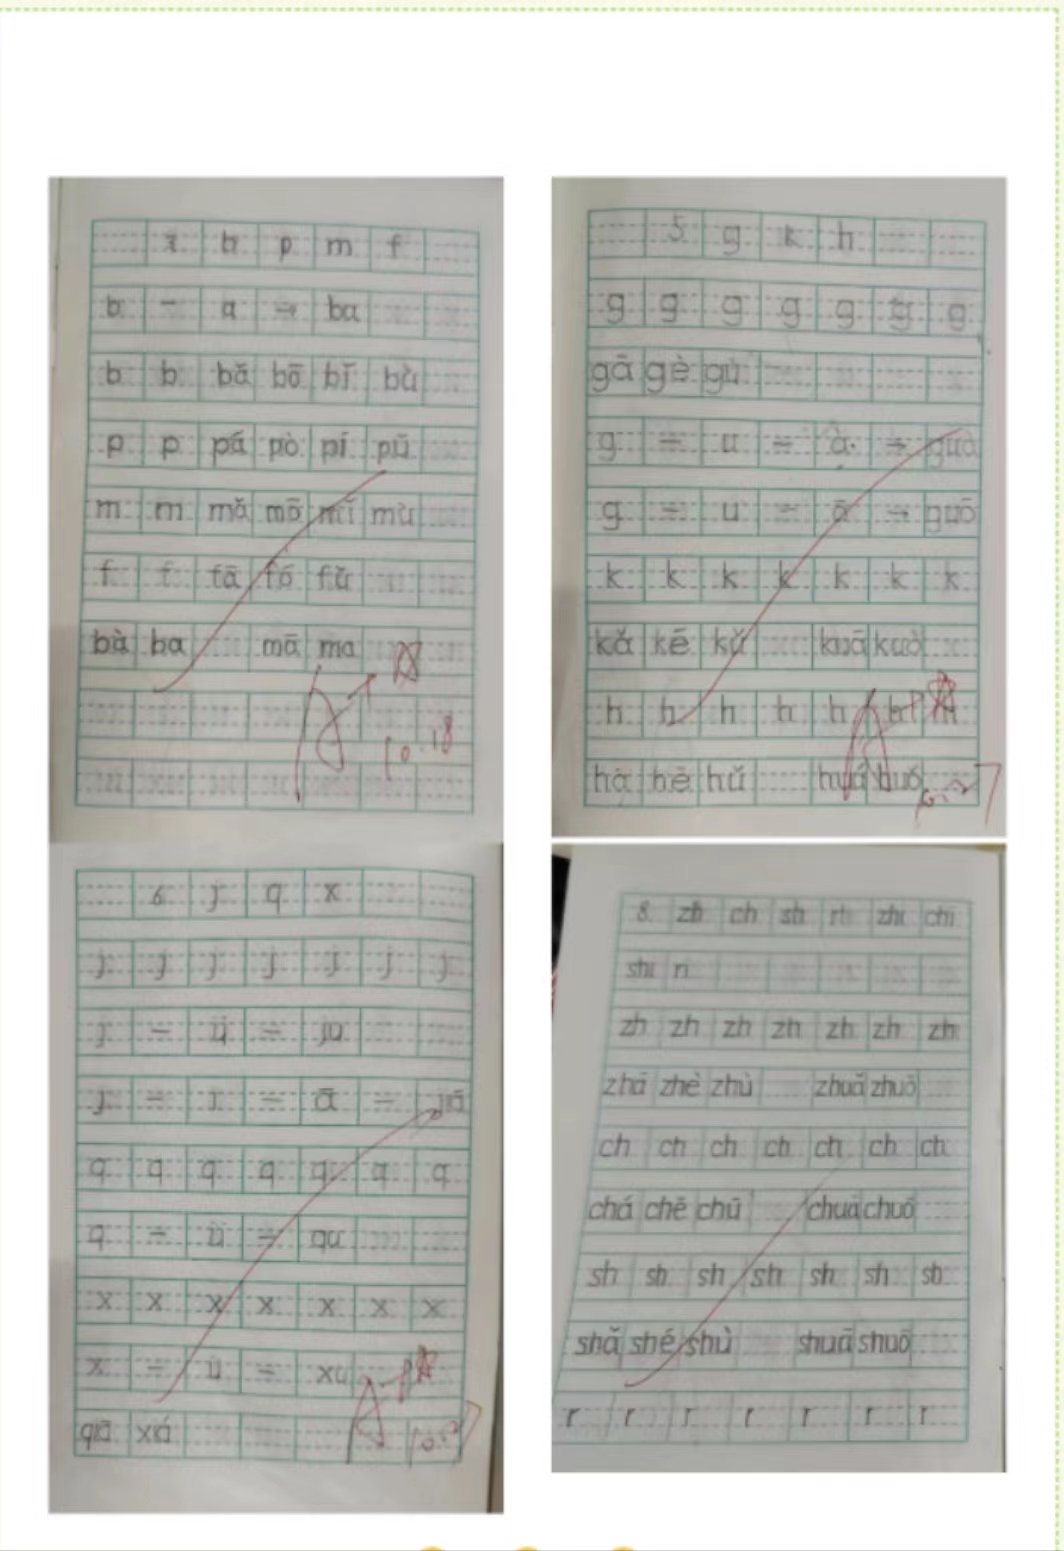 b p m f
b - a → ba
b b bǎ bō bǐ bù
p p pá pò pí pū
m m mǎ mō mǐ mù
f f fā fó fǔ
bà ba mā ma
10.18
5 g k h
g g g g g g g
gā gè gù
g - u - → guà
g - u - → guō
k k k k k k k
kǎ kē kǔ kuā kuò
h h h h h h h
hā hē hǔ huá huǒ
6 j q x
j j j j j j j
j - ü - ju
j - i - ā - jiā
q q q q q q q
q - ü - qu
x x x x x x x
x - ü - xu
qiā xiá
8 zh ch sh zhi chi
shi ri
zh zh zh zh zh zh zh
zhā zhè zhù zhuā zhuō
ch ch ch ch ch ch ch
chá chē chū chuā chuō
sh sh sh sh sh sh sh
shǎ shé shù shuā shuō
r r r r r r r